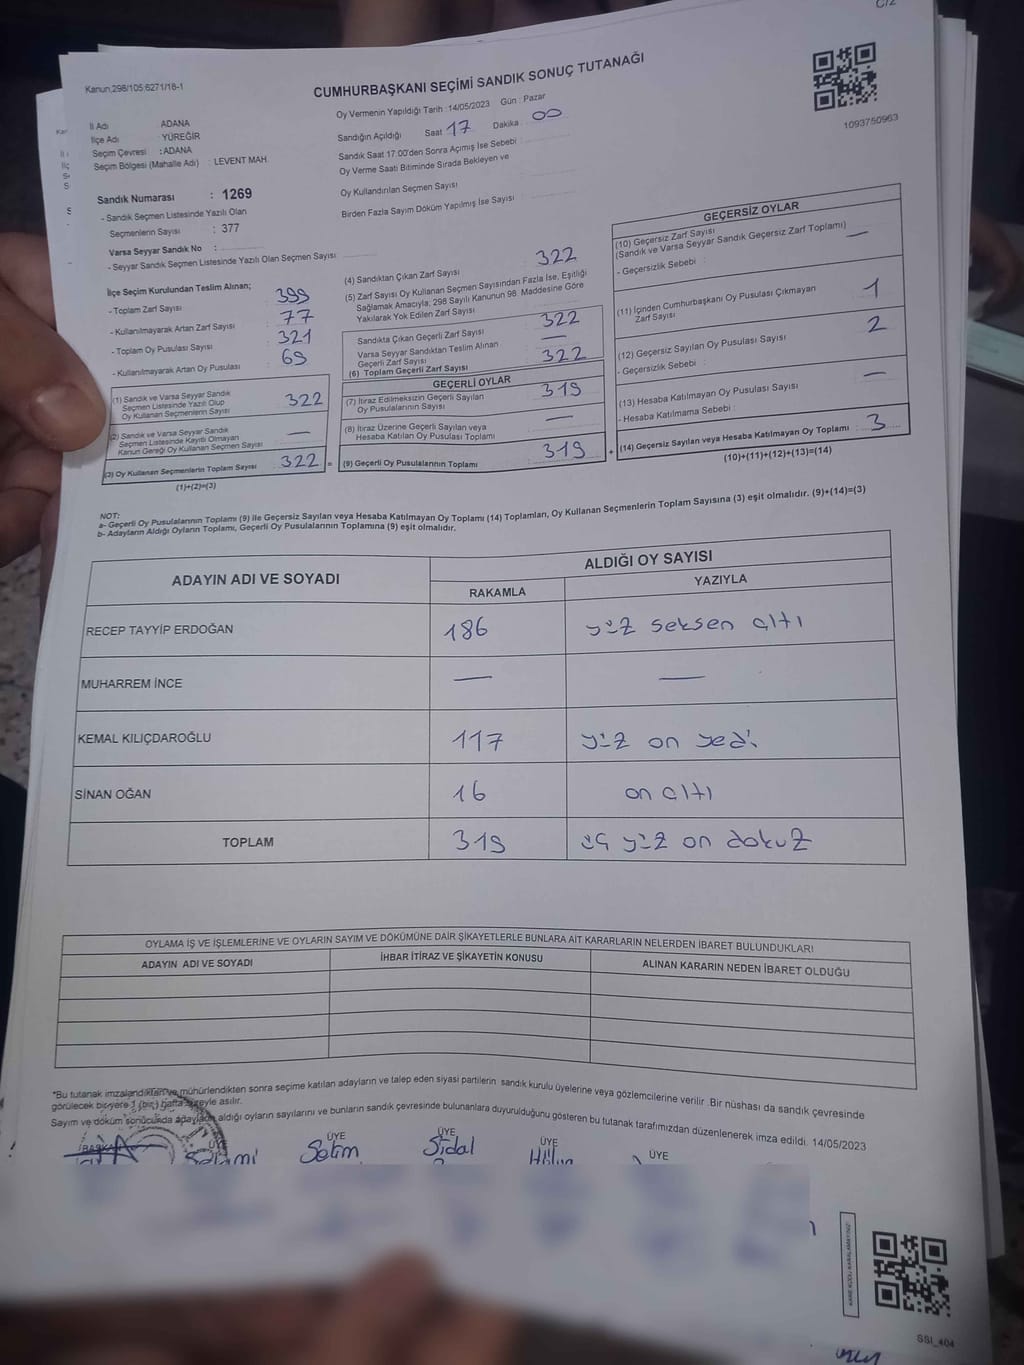 C/2
Kanun,298/105;6271/18-1
CUMHURBAŞKANI SEÇİMİ SANDIK SONUÇ TUTANAĞI
1093750963
İl Adı : ADANA
İlçe Adı : YÜREĞİR
Seçim Çevresi : ADANA
Seçim Bölgesi (Mahalle Adı) : LEVENT MAH.
Oy Vermenin Yapıldığı Tarih : 14/05/2023 Gün : Pazar
Sandığın Açıldığı Saat 17 Dakika 00
Sandık Saat 17:00'den Sonra Açımış İse Sebebi :
Oy Verme Saati Bitiminde Sırada Bekleyen ve
Oy Kullandırılan Seçmen Sayısı
Birden Fazla Sayım Döküm Yapılmış İse Sayısı
Sandık Numarası : 1269
- Sandık Seçmen Listesinde Yazılı Olan
Seçmenlerin Sayısı : 377
Varsa Seyyar Sandık No :
- Seyyar Sandık Seçmen Listesinde Yazılı Olan Seçmen Sayısı
İlçe Seçim Kurulundan Teslim Alınan;
- Toplam Zarf Sayısı : 399
- Kullanılmayarak Artan Zarf Sayısı : 77
- Toplam Oy Pusulası Sayısı : 321
- Kullanılmayarak Artan Oy Pusulası : 69
(1) Sandık ve Varsa Seyyar Sandık
Seçmen Listesinde Yazılı Olup
Oy Kullanan Seçmenlerin Sayısı : 322
(2) Sandık ve Varsa Seyyar Sandık
Seçmen Listesinde Kayıtlı Olmayan
Kanun Gereği Oy Kullanan Seçmen Sayısı : —
(3) Oy Kullanan Seçmenlerin Toplam Sayısı 322 =
(1)+(2)=(3)
(4) Sandıktan Çıkan Zarf Sayısı : 322
(5) Zarf Sayısı Oy Kullanan Seçmen Sayısından Fazla İse, Eşitliği
Sağlamak Amacıyla; 298 Sayılı Kanunun 98. Maddesine Göre
Yakılarak Yok Edilen Zarf Sayısı
Sandıkta Çıkan Geçerli Zarf Sayısı : 322
Varsa Seyyar Sandıktan Teslim Alınan
Geçerli Zarf Sayısı : —
(6) Toplam Geçerli Zarf Sayısı : 322
GEÇERLİ OYLAR
(7) İtiraz Edilmeksizin Geçerli Sayılan
Oy Pusulalarının Sayısı : 319
(8) İtiraz Üzerine Geçerli Sayılan veya
Hesaba Katılan Oy Pusulası Toplamı : —
(9) Geçerli Oy Pusulalarının Toplamı : 319 +
GEÇERSİZ OYLAR
(10) Geçersiz Zarf Sayısı
(Sandık ve Varsa Seyyar Sandık Geçersiz Zarf Toplamı) —
- Geçersizlik Sebebi :
(11) İçinden Cumhurbaşkanı Oy Pusulası Çıkmayan
Zarf Sayısı : 1
(12) Geçersiz Sayılan Oy Pusulası Sayısı : 2
- Geçersizlik Sebebi :
(13) Hesaba Katılmayan Oy Pusulası Sayısı : —
- Hesaba Katılmama Sebebi :
(14) Geçersiz Sayılan veya Hesaba Katılmayan Oy Toplamı : 3
(10)+(11)+(12)+(13)=(14)
NOT:
a- Geçerli Oy Pusulalarının Toplamı (9) ile Geçersiz Sayılan veya Hesaba Katılmayan Oy Toplamı (14) Toplamları, Oy Kullanan Seçmenlerin Toplam Sayısına (3) eşit olmalıdır. (9)+(14)=(3)
b- Adayların Aldığı Oyların Toplamı, Geçerli Oy Pusulalarının Toplamına (9) eşit olmalıdır.
ADAYIN ADI VE SOYADI
ALDIĞI OY SAYISI
RAKAMLA YAZIYLA
RECEP TAYYİP ERDOĞAN 186 yüz seksen altı
MUHARREM İNCE — —
KEMAL KILIÇDAROĞLU 117 yüz on yedi
SİNAN OĞAN 16 on altı
TOPLAM 319 üç yüz on dokuz
OYLAMA İŞ VE İŞLEMLERİNE VE OYLARIN SAYIM VE DÖKÜMÜNE DAİR ŞİKAYETLERLE BUNLARA AİT KARARLARIN NELERDEN İBARET BULUNDUKLARI
ADAYIN ADI VE SOYADI İHBAR İTİRAZ VE ŞİKAYETİN KONUSU ALINAN KARARIN NEDEN İBARET OLDUĞU
*Bu tutanak imzalandıktan ve mühürlendikten sonra seçime katılan adayların ve talep eden siyasi partilerin sandık kurulu üyelerine veya gözlemcilerine verilir. Bir nüshası da sandık çevresinde
görülecek bir yere 1 (bir) hafta süreyle asılır.
Sayım ve döküm sonucunda adayların aldığı oyların sayılarını ve bunların sandık çevresinde bulunanlara duyurulduğunu gösteren bu tutanak tarafımızdan düzenlenerek imza edildi. 14/05/2023
BAŞKAN ÜYE ÜYE ÜYE ÜYE
Selami Selim Sidal
SSI_404